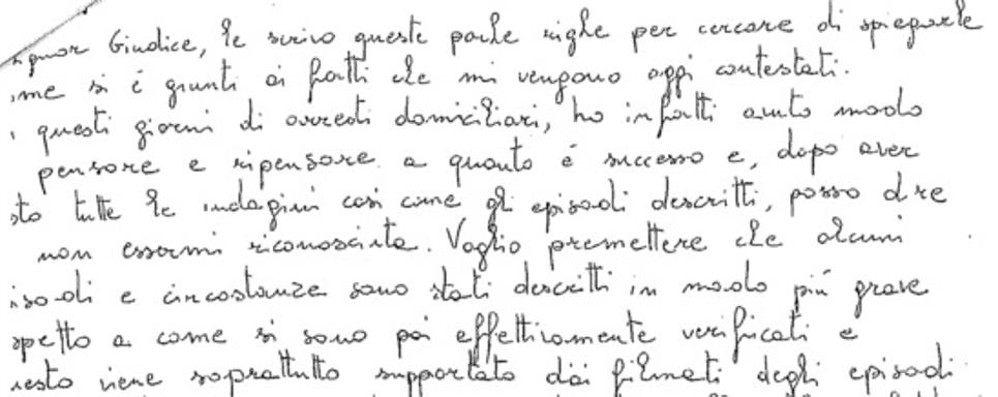 ignor Giudice, le scrivo queste poche righe per cercare di spiegarle
ome si è giunti ai fatti che mi vengono oggi contestati.
n questi giorni di arresti domiciliari, ho infatti avuto modo
pensare e ripensare a quanto è successo e, dopo aver
sto tutte le indagini così come gli episodi descritti, posso dire
non essermi riconosciuta. Voglio premettere che alcuni
isodi e circostanze sono stati descritti in modo più grave
spetto a come si sono poi effettivamente verificati e
uesto viene soprattutto supportato dai filmati degli episodi